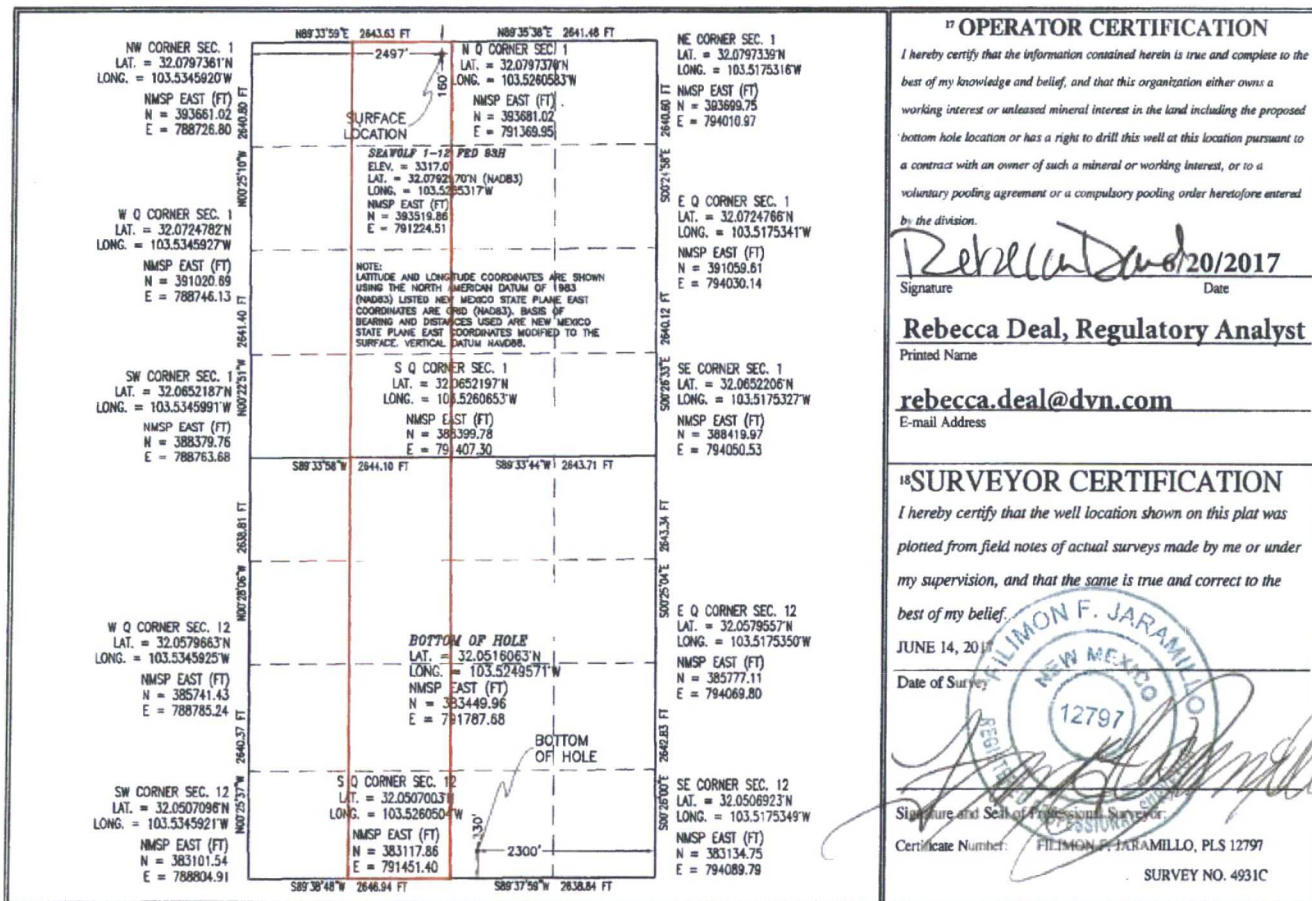 N89°33'59"E 2643.63 FT
N89°35'38"E 2641.48 FT
NW CORNER SEC. 1
LAT. = 32.0797361'N
LONG. = 103.5345920'W
NMSP EAST (FT)
N = 393661.02
E = 788726.80
2497'
160'
SURFACE
LOCATION
N Q CORNER SEC. 1
LAT. = 32.0797370'N
LONG. = 103.5260583'W
NMSP EAST (FT)
N = 393681.02
E = 791369.95
NE CORNER SEC. 1
LAT. = 32.0797339'N
LONG. = 103.5175316'W
NMSP EAST (FT)
N = 393699.75
E = 794010.97
N00°25'10"W 2640.80 FT
S00°24'58"E 2640.60 FT
SEAWOLF 1-12 FED 93H
ELEV. = 3317.0'
LAT. = 32.0792970'N (NAD83)
LONG. = 103.5265317'W
NMSP EAST (FT)
N = 393519.86
E = 791224.51
W Q CORNER SEC. 1
LAT. = 32.0724782'N
LONG. = 103.5345927'W
NMSP EAST (FT)
N = 391020.69
E = 788746.13
E Q CORNER SEC. 1
LAT. = 32.0724766'N
LONG. = 103.5175341'W
NMSP EAST (FT)
N = 391059.61
E = 794030.14
NOTE:
LATITUDE AND LONGITUDE COORDINATES ARE SHOWN
USING THE NORTH AMERICAN DATUM OF 1983
(NAD83) LISTED NEW MEXICO STATE PLANE EAST
COORDINATES ARE GRID (NAD83). BASIS OF
BEARING AND DISTANCES USED ARE NEW MEXICO
STATE PLANE EAST COORDINATES MODIFIED TO THE
SURFACE. VERTICAL DATUM NAVD88.
N00°22'51"W 2641.40 FT
S00°26'33"E 2640.12 FT
SW CORNER SEC. 1
LAT. = 32.0652187'N
LONG. = 103.5345991'W
NMSP EAST (FT)
N = 388379.76
E = 788763.68
S Q CORNER SEC. 1
LAT. = 32.0652197'N
LONG. = 103.5260653'W
NMSP EAST (FT)
N = 388399.78
E = 791407.30
SE CORNER SEC. 1
LAT. = 32.0652206'N
LONG. = 103.5175327'W
NMSP EAST (FT)
N = 388419.97
E = 794050.53
S89°33'58"W 2644.10 FT
S89°33'44"W 2643.71 FT
N00°28'06"W 2638.81 FT
S00°25'04"E 2643.34 FT
W Q CORNER SEC. 12
LAT. = 32.0579663'N
LONG. = 103.5345925'W
NMSP EAST (FT)
N = 385741.43
E = 788785.24
BOTTOM OF HOLE
LAT. = 32.0516063'N
LONG. = 103.5249571'W
NMSP EAST (FT)
N = 383449.96
E = 791787.68
E Q CORNER SEC. 12
LAT. = 32.0579557'N
LONG. = 103.5175350'W
NMSP EAST (FT)
N = 385777.11
E = 794069.80
N00°25'37"W 2640.37 FT
S00°26'00"E 2642.83 FT
BOTTOM
OF HOLE
SW CORNER SEC. 12
LAT. = 32.0507096'N
LONG. = 103.5345921'W
NMSP EAST (FT)
N = 383101.54
E = 788804.91
S Q CORNER SEC. 12
LAT. = 32.0507003'N
LONG. = 103.5260504'W
NMSP EAST (FT)
N = 383117.86
E = 791451.40
330'
2300'
SE CORNER SEC. 12
LAT. = 32.0506923'N
LONG. = 103.5175349'W
NMSP EAST (FT)
N = 383134.75
E = 794089.79
S89°38'48"W 2646.94 FT
S89°37'59"W 2638.84 FT
17 OPERATOR CERTIFICATION
I hereby certify that the information contained herein is true and complete to the
best of my knowledge and belief, and that this organization either owns a
working interest or unleased mineral interest in the land including the proposed
bottom hole location or has a right to drill this well at this location pursuant to
a contract with an owner of such a mineral or working interest, or to a
voluntary pooling agreement or a compulsory pooling order heretofore entered
by the division.
Rebecca Deal 6/20/2017
Signature Date
Rebecca Deal, Regulatory Analyst
Printed Name
rebecca.deal@dvn.com
E-mail Address
18 SURVEYOR CERTIFICATION
I hereby certify that the well location shown on this plat was
plotted from field notes of actual surveys made by me or under
my supervision, and that the same is true and correct to the
best of my belief.
JUNE 14, 2017
Date of Survey
FILIMON F. JARAMILLO
NEW MEXICO
12797
REGISTERED PROFESSIONAL SURVEYOR
Signature and Seal of Professional Surveyor:
Certificate Number: FILIMON F. JARAMILLO, PLS 12797
SURVEY NO. 4931C